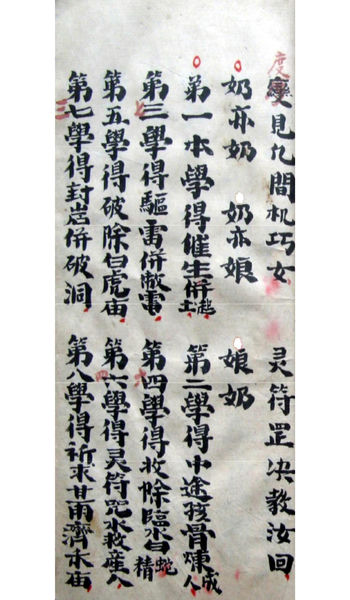 度變見凡間机巧女 灵符罡决教汝回
奶亦奶 奶亦娘 娘奶
第一本學得催生併 第二學得中途孩骨煉成人
第三學得驅雷併敝電 第四學得收除臨水白蛇精
第五學得破除白虎庙 第六學得灵符咒水救産人
第七學得封岩併破洞 第八學得祈求甘雨濟禾庙